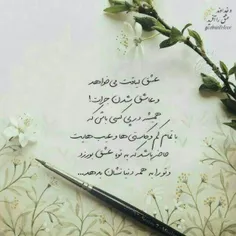 عشق لیاقت می‌خواهد
و عاشق شدن جرات!
همیشه درپی کسی باش که
با تمام کم و کاستی‌ها و عیب هایت
حاضر باشد که به تو عشق بورزد
و تو را به همه دنیا نشان بدهد...